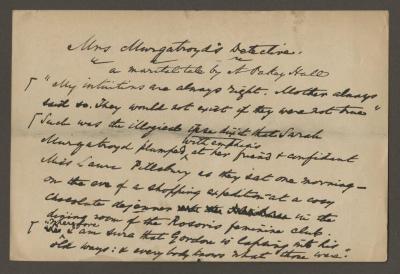 Mrs Murgatroyd's Detective.
a marital tale by A Oakey Hall
"My intuitions are always right. Mother always
said so. They would not exist if they were not true"
Such was the illogical that Sarah
with emphasis
Murgatroyd plumped at her friend & confidant
Miss Laura Pillsbury as they sat one morning –
on the eve of a shopping expedition at a cosy
chocolate dejeuner in the
dining room of the Rosoris feminine club.
"Therefore
I am sure that Gordon is lapsing into his
old ways: & every body knows what those were."